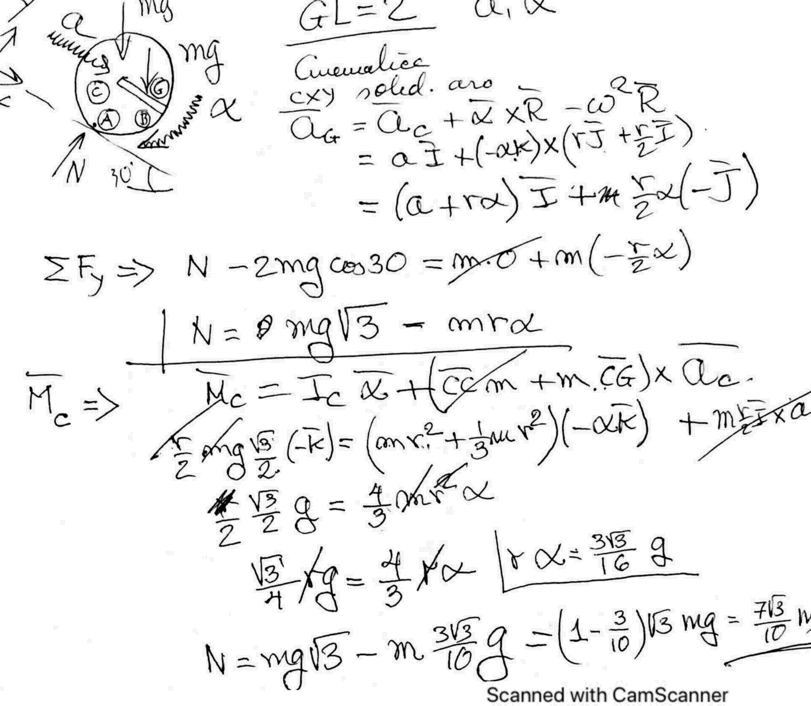 mg
GL=2 a, α
a mg
C G
A B α
N 30°
Cinematica
CXY solid. aro
a̅_G = a̅_C + α̅ × R̅ − ω² R̅
= a I̅ + (−αk̅) × (r J̅ + r/2 I̅)
= (a + rα) I̅ + r/2 α (−J̅)
ΣF_y => N − 2mg cos30 = m·0 + m(−r/2 α)
N = mg√3 − mrα
M̅_C => M̅_C = I_C α̅ + (C̅C̅ m + m. C̅G̅) × a̅_C.
r/2 mg √3/2 (−k̅) = (mr² + 1/3 mr²)(−αk̅) + m r/2 I̅ × a
1/2 √3/2 g = 4/3 mr² α
√3/4 rg = 4/3 rα | rα = 3√3/16 g
N = mg√3 − m 3√3/10 g = (1 − 3/10)√3 mg = 7√3/10 m
Scanned with CamScanner